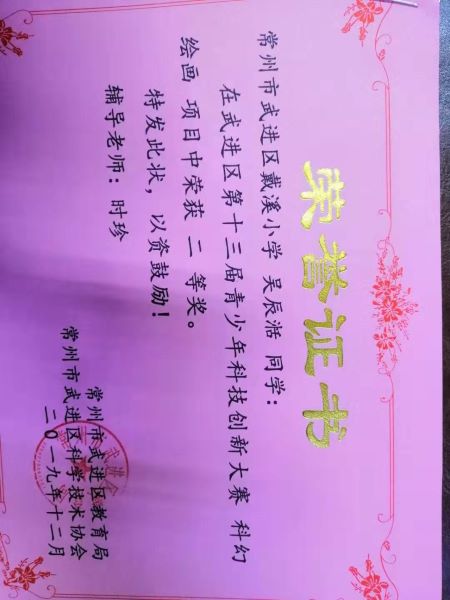 荣誉证书
常州市武进区戴溪小学 吴辰湉 同学：
在武进区第十三届青少年科技创新大赛 科幻
绘画 项目中荣获 二 等奖。
特发此状，以资鼓励！
辅导老师：时珍
常州市武进区教育局
常州市武进区科学技术协会
二〇一九年十二月